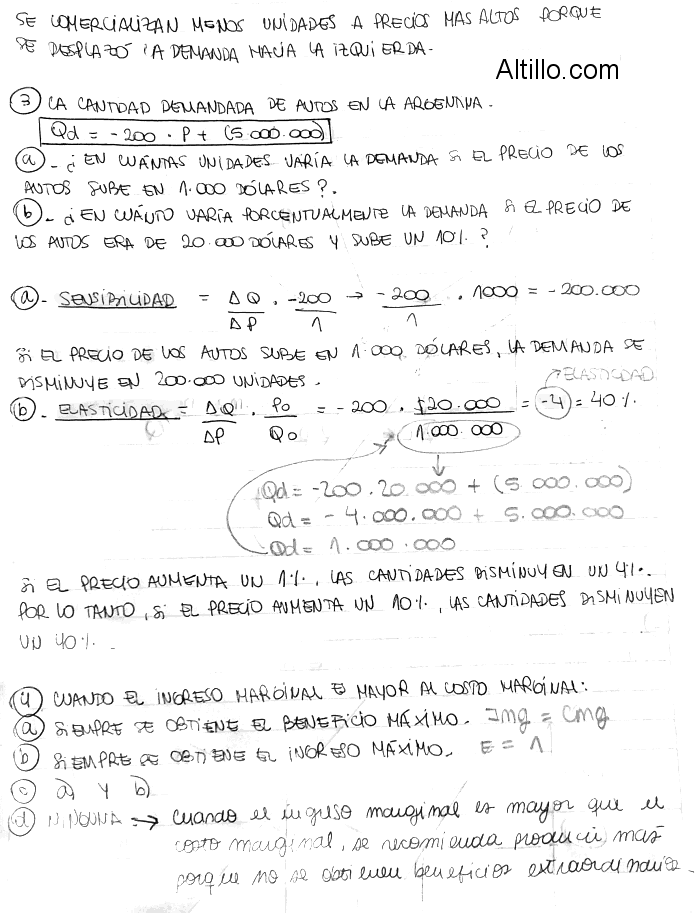 SE COMERCIALIZAN MENOS UNIDADES A PRECIOS MAS ALTOS PORQUE
SE DESPLAZÓ LA DEMANDA HACIA LA IZQUIERDA.
Altillo.com
③ LA CANTIDAD DEMANDADA DE AUTOS EN LA ARGENTINA.
Qd = -200 . P + (5.000.000)
ⓐ - ¿EN CUÁNTAS UNIDADES VARÍA LA DEMANDA SI EL PRECIO DE LOS
AUTOS SUBE EN 1.000 DÓLARES?.
ⓑ - ¿EN CUÁNTO VARÍA PORCENTUALMENTE LA DEMANDA SI EL PRECIO DE
LOS AUTOS ERA DE 20.000 DÓLARES Y SUBE UN 10%?
ⓐ - SENSIBILIDAD = ΔQ/ΔP . -200/1 → -200/1 . 1000 = -200.000
SI EL PRECIO DE LOS AUTOS SUBE EN 1.000 DÓLARES, LA DEMANDA SE
DISMINUYE EN 200.000 UNIDADES.
→ ELASTICIDAD
ⓑ - ELASTICIDAD = ΔQ/ΔP . P0/Q0 = -200 . $20.000/1.000.000 = -4 = 40%
Qd = -200.20.000 + (5.000.000)
Qd = -4.000.000 + 5.000.000
Qd = 1.000.000
SI EL PRECIO AUMENTA UN 1%, LAS CANTIDADES DISMINUYEN UN 4%.
POR LO TANTO, SI EL PRECIO AUMENTA UN 10%, LAS CANTIDADES DISMINUYEN
UN 40%.
④ CUANDO EL INGRESO MARGINAL ES MAYOR AL COSTO MARGINAL:
ⓐ SIEMPRE SE OBTIENE EL BENEFICIO MÁXIMO. Img = Cmg
ⓑ SIEMPRE SE OBTIENE EL INGRESO MÁXIMO. E = 1
ⓒ a) Y b)
ⓓ NINGUNA → Cuando el ingreso marginal es mayor que el
costo marginal, se recomienda producir más
porque no se obtienen beneficios extraordinarios.